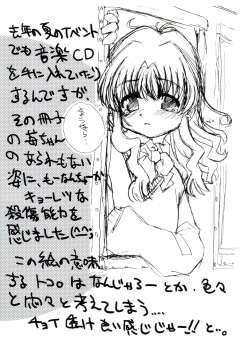 去年の夏のイベント
でも音楽CD
を手に入れていたり
するんですが、
その冊子
の苺ちゃん
のあられもない
姿に、もーなんちゅーか
キョーレツな
殺傷能力を
感じました(^^;
この絵の意味
するトコ。はなんじゃろーとか、色々
と悶々と考えてしまう....
チョイ色けき感じじゃー!!と…。